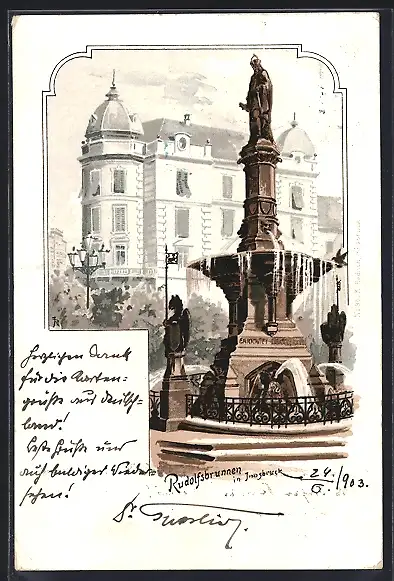 Herzlichen Dank
für die Karten-
grüße aus Deutsch-
land!
Beste Grüße und
auf baldiges Wieder-
sehen!
Rudolfsbrunnen
in Innsbruck
24./6. 1903.
Dr.